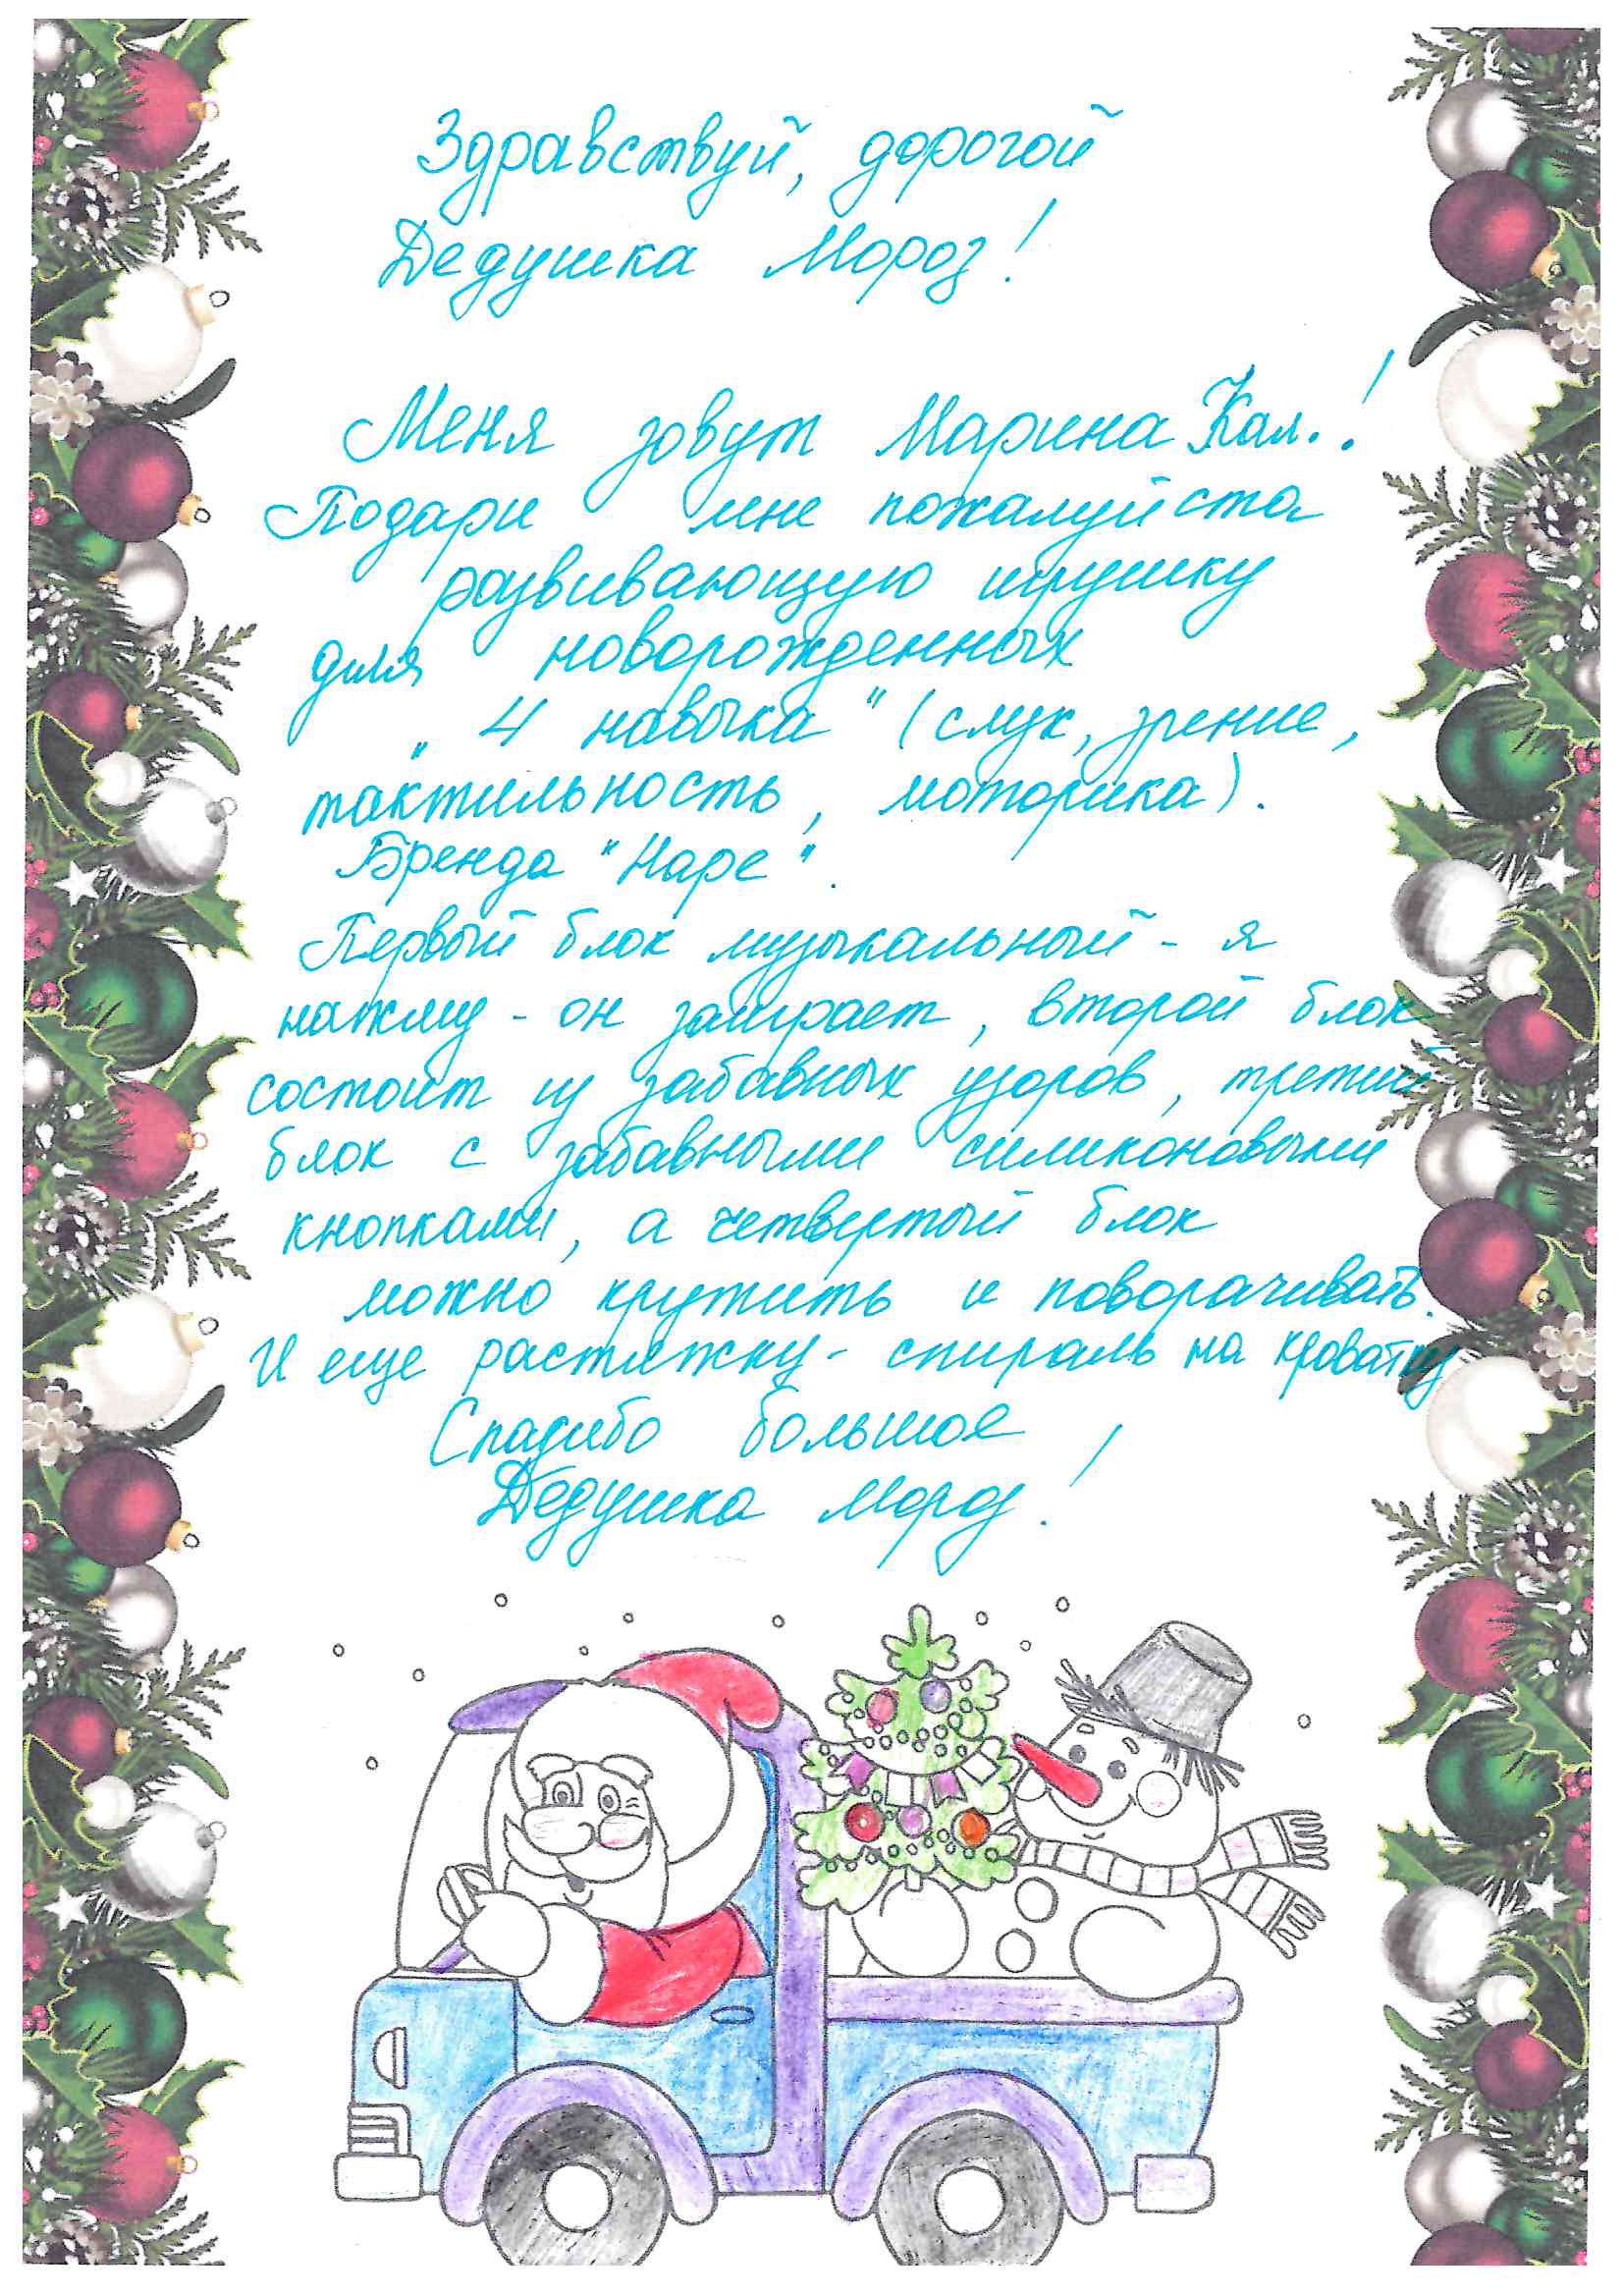 Здравствуй, дорогой
Дедушка Мороз!
Меня зовут Марина Кал.!
Подари мне пожалуйста
развивающую игрушку
для новорожденных
„4 навыка" (слух, зрение,
тактильность, моторика).
Бренда "Hape".
Первый блок музыкальный - я
нажму - он заиграет, второй блок
состоит из забавных узоров, третий
блок с забавными силиконовыми
кнопками, а четвертый блок
можно крутить и поворачивать.
И еще растяжку - спираль на кроватку
Спасибо большое
Дедушка Мороз!